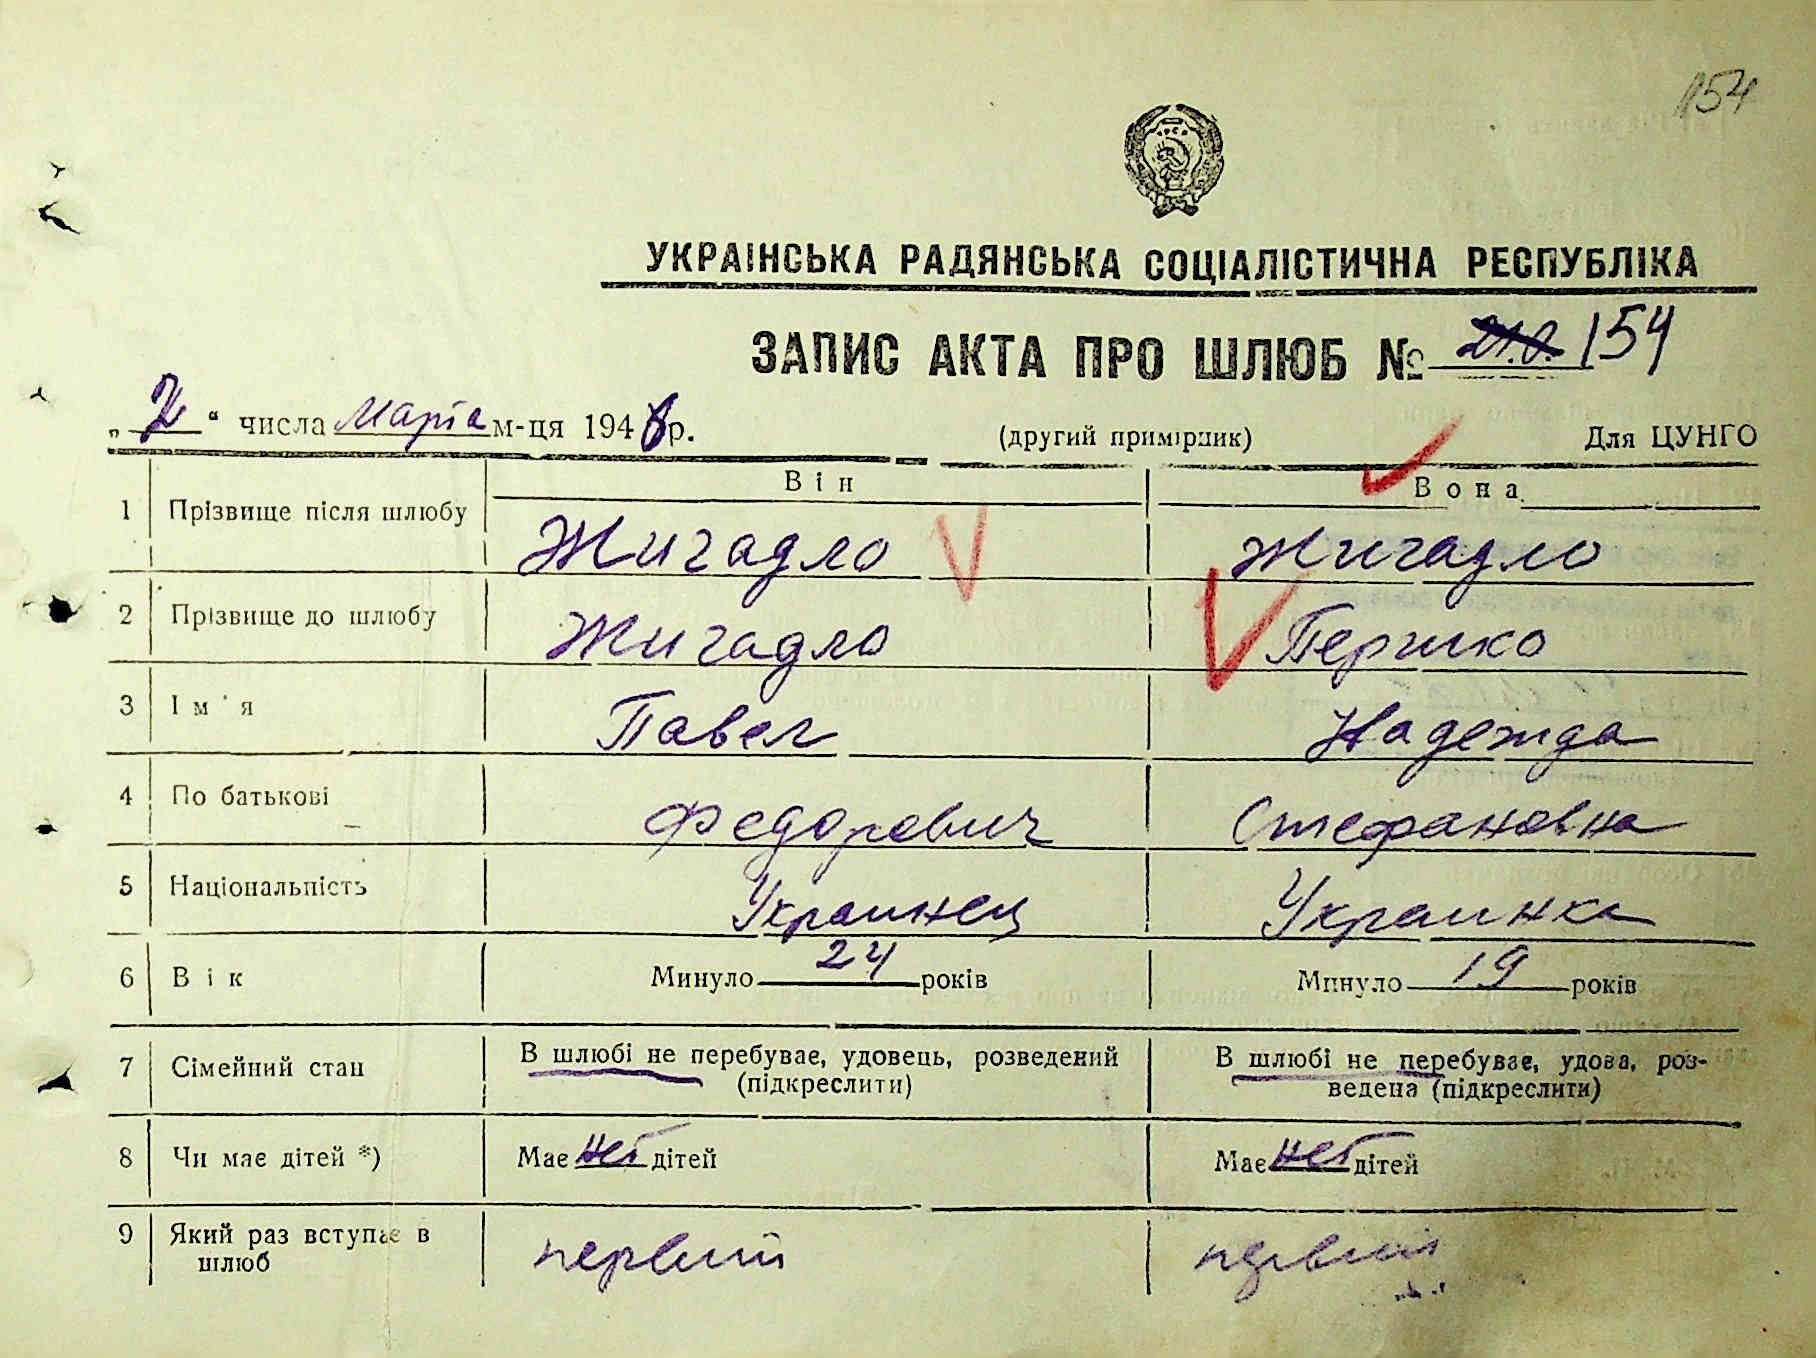 154
УКРАЇНСЬКА РАДЯНСЬКА СОЦІАЛІСТИЧНА РЕСПУБЛІКА
ЗАПИС АКТА ПРО ШЛЮБ № 154
„2“ числа Марта м-ця 1946 р. (другий примірник) Для ЦУНГО
Він Вона
1 Прізвище після шлюбу Жигадло Жигадло
2 Прізвище до шлюбу Жигадло Першко
3 Ім'я Павел Надежда
4 По батькові Федорович Стефановна
5 Національність Украинец Украинка
6 Вік Минуло 24 років Минуло 19 років
7 Сімейний стан В шлюбі не перебуває, удовець, розведений В шлюбі не перебуває, удова, роз-
(підкреслити) ведена (підкреслити)
8 Чи має дітей *) Має нет дітей Має нет дітей
9 Який раз вступає в
шлюб первий первий